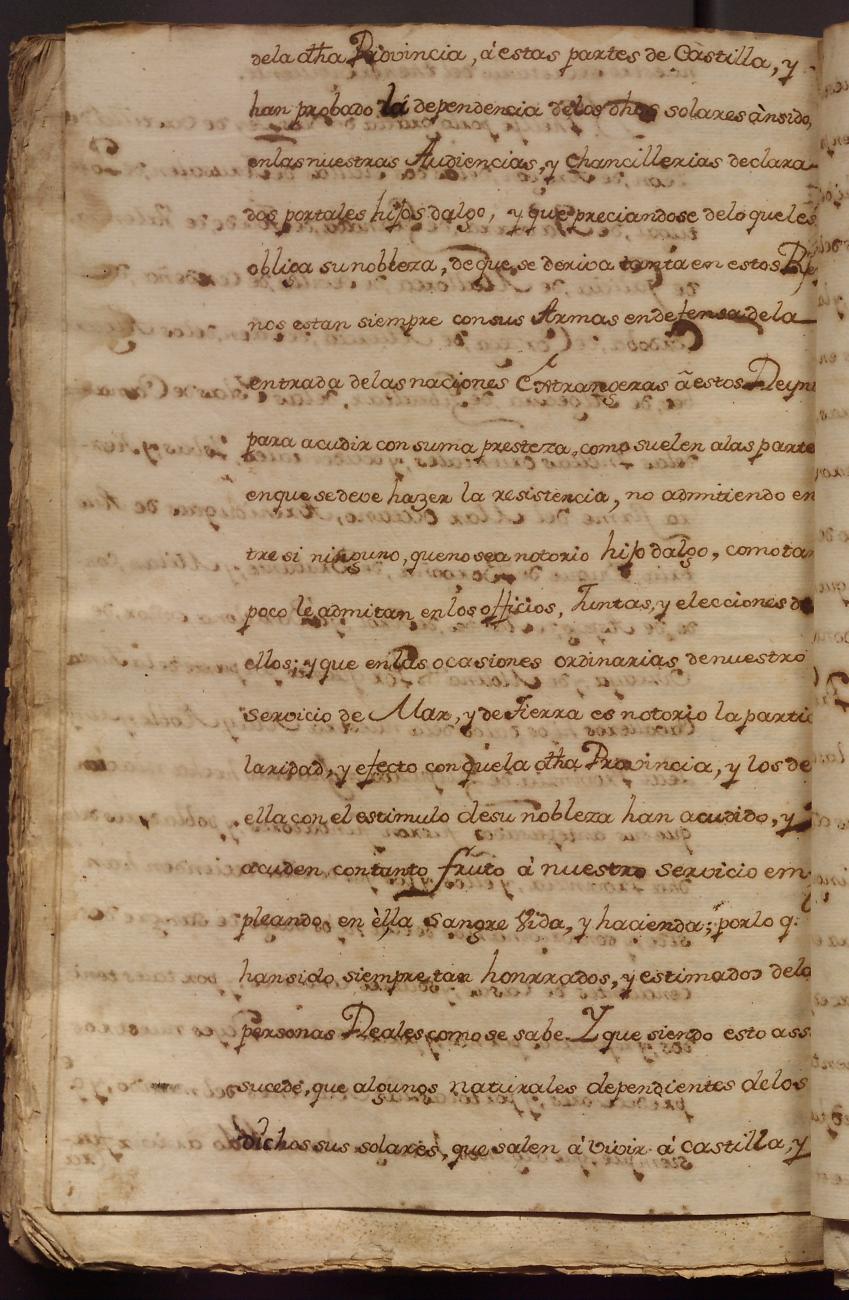 dela dha Provincia, á estas partes de Castilla, y
han probado la dependencia delos dhos solares ànsido,
enlas nuestras Audiencias, y Chancillerias declara-
dos portales hijos dalgo, y que preciandose delo queles
obliga su nobleza, de que se deriva tanta en estos
nos estan siempre con sus Armas en defensa dela
entrada delas naciones Extrangeras â estos Reyn
para acudir con suma presteza, como suelen alas parte
enque se deve hazer la resistencia, no admitiendo en
tre si ninguno, que no sea notorio hijo dalgo, como tan
poco le admitan en los officios, Juntas, y elecciones de
ellos; y que en las ocasiones ordinarias de nuestro
servicio de Mar, y de Tierra es notorio la partic
laridad, y efecto con que la dha Provincia, y los de
ella con el estimulo desu nobleza han acudido, y
acuden, con tanto fruto á nuestro servicio em
pleando, en èlla Sangre Vida, y hacienda; por lo q.
han sido, siempre tan honrrados, y estimados delo
personas Reales como se sabe. Y que siendo esto ass
sucede, que algunos naturales dependientes de los
dichos sus solares, que salen á vivir á Castilla, y